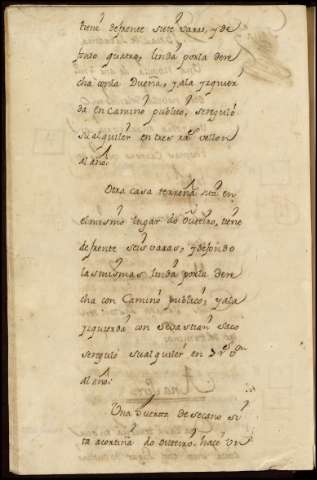 tiene de frente siete varas, y de
fondo quatro, linda por la dere
cha con la Dueña, y a la yzquier
da en Camino publico, se reguló
su alquiler en tres rs vellon
al año.
Otra casa terrena sita en
el mismo lugar do Outeiro, tiene
de frente seis varas, y de fondo
las mismas linda por la dere
cha con Camino publico, y a la
yzquierda con Sebastian Saco
se reguló su alquiler en 3 rs
al año.
Una Ducato de Secano si
ta acortiña do outeiro, hace un